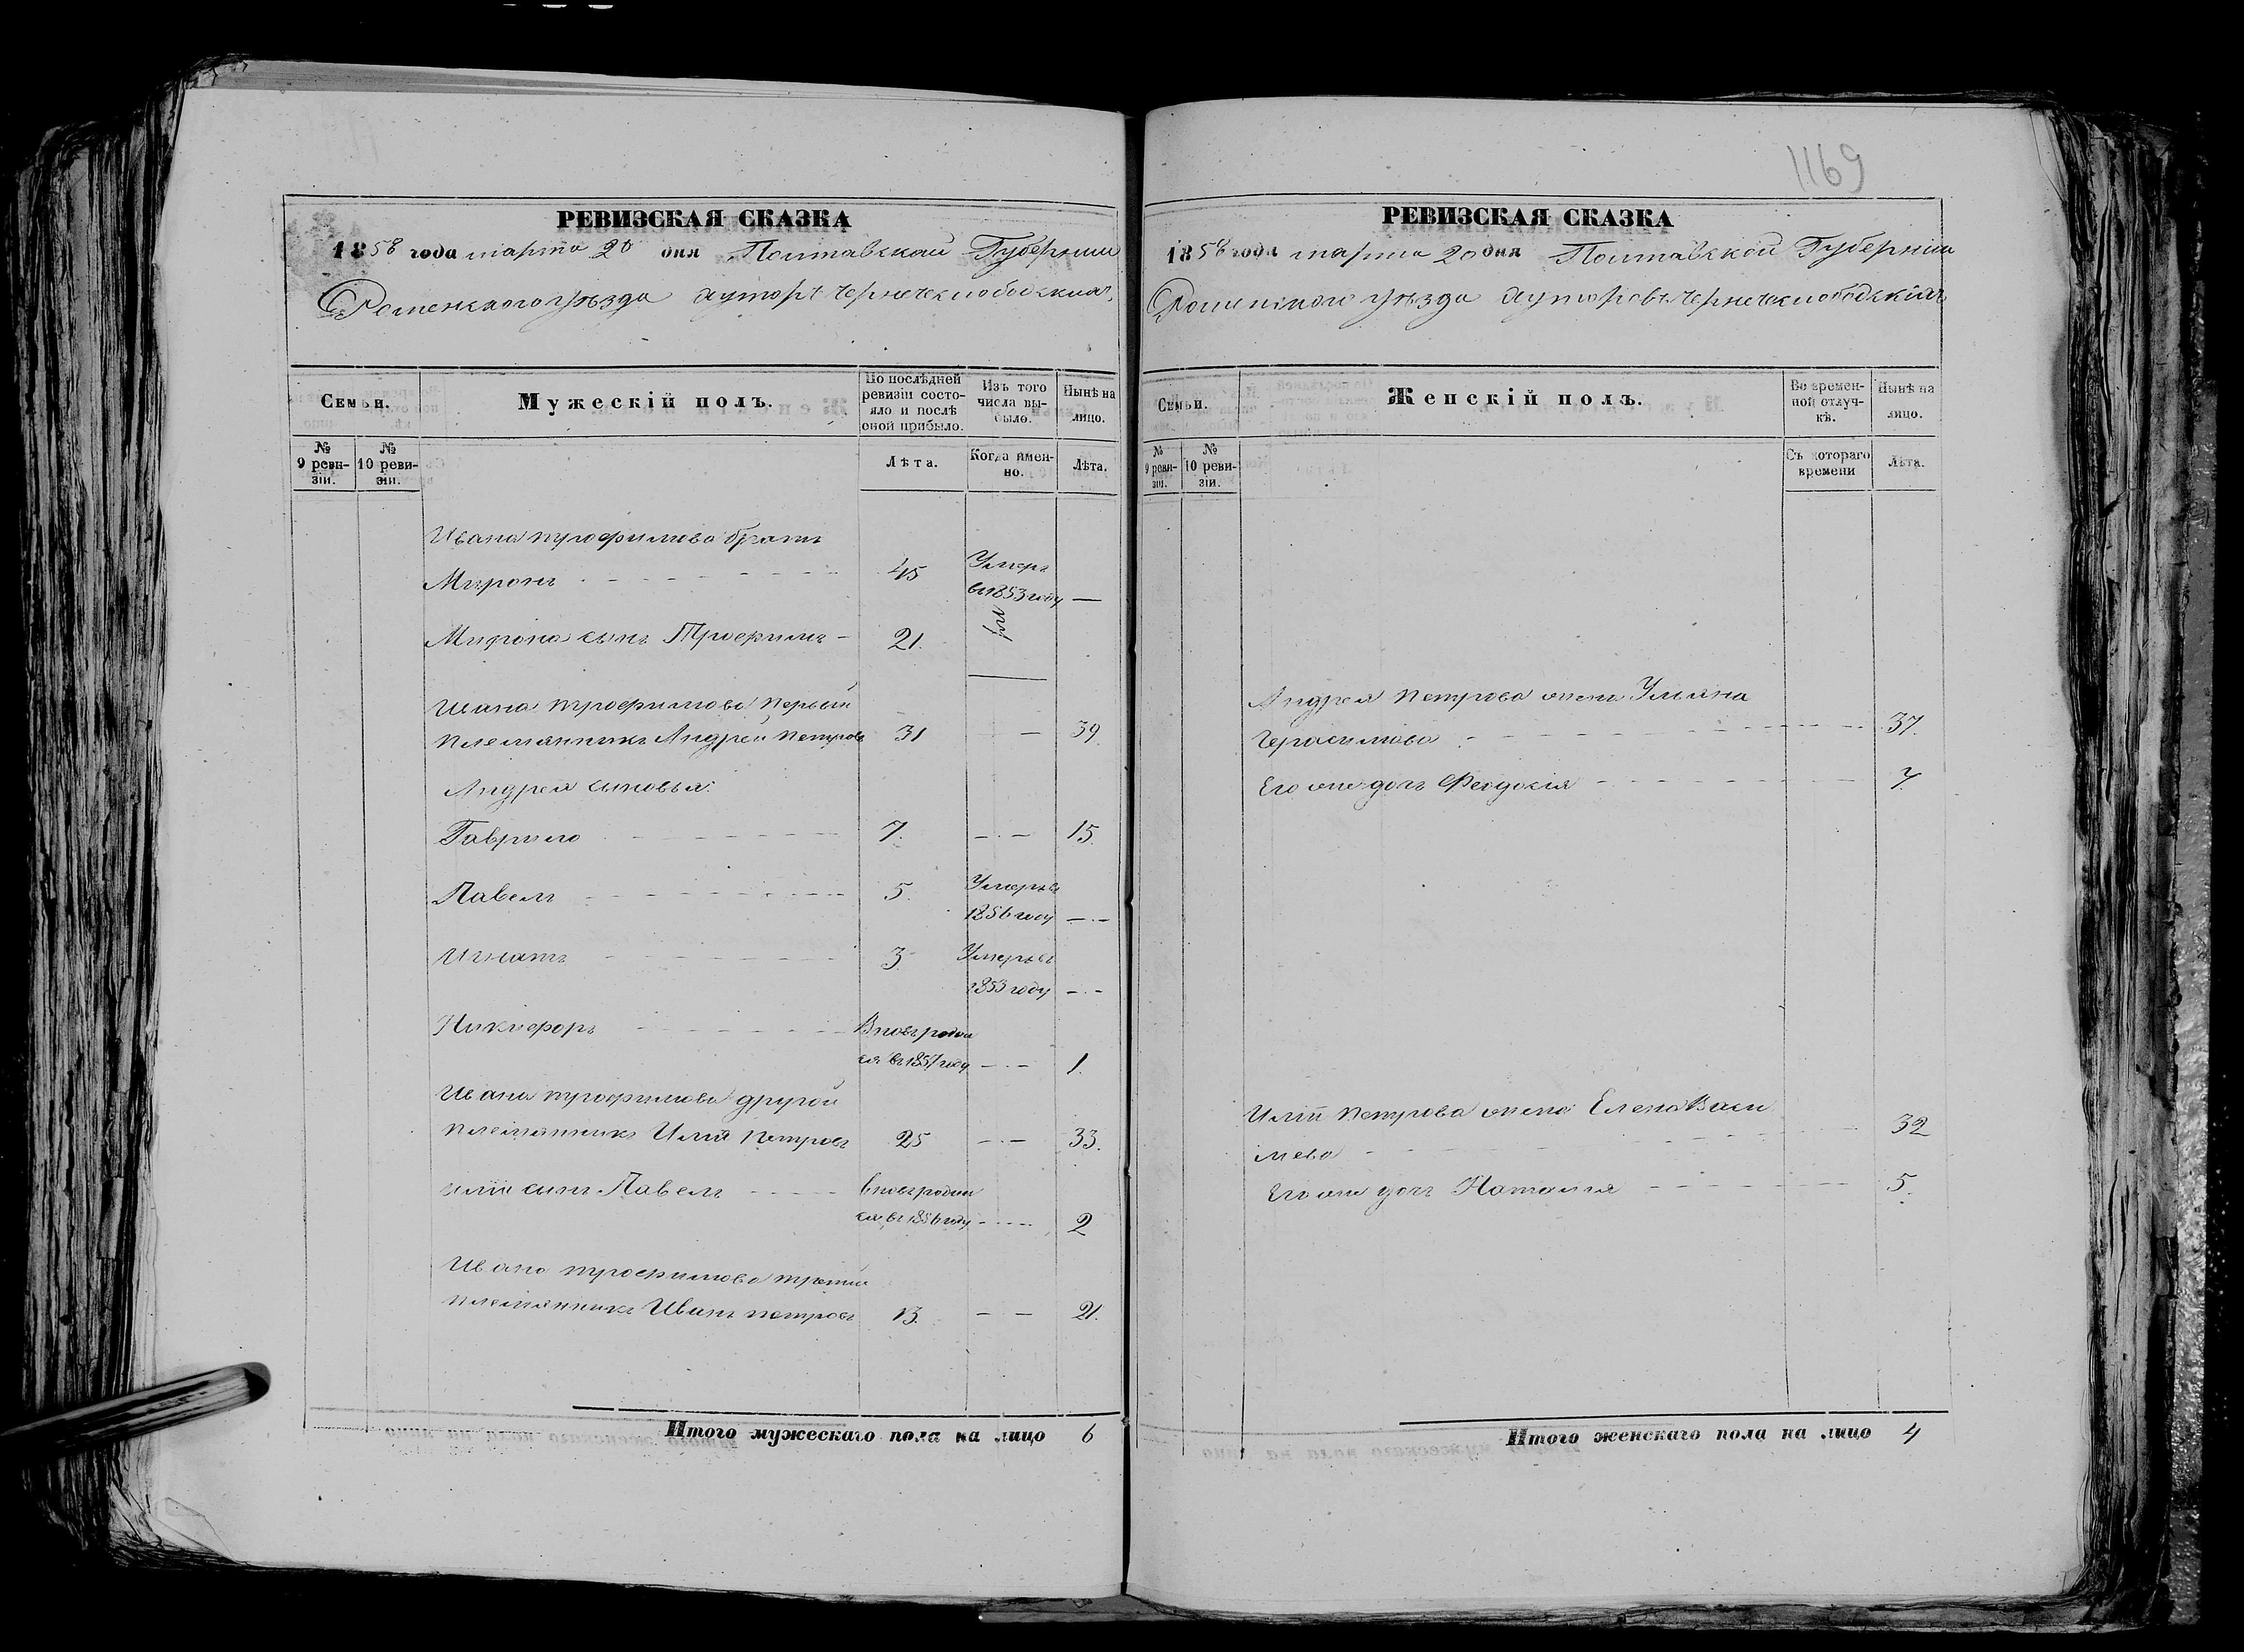 1169
РЕВИЗСКАЯ СКАЗКА
1858 года марта 20 дня Полтавской Губернии
Роменского уѣзда хуторъ Чернечеслободскихъ
Семьи.
Мужескій полъ.
По послѣдней ревизіи состояло и послѣ оной прибыло.
Изъ того числа выбыло.
Нынѣ на лицо.
№ 9 ревизіи.
№ 10 ревизіи.
Лѣта.
Когда именно.
Лѣта.
Ивана трофимова братъ
Миронъ 45 Умеръ
въ 1853 году —
Мирона сынъ Трофимъ 21.
Ивана трофимова первый
племянникъ Андрей петровъ 31 — 39.
Андрея сыновья:
Гаврило 7. — 15.
Павелъ 5. Умеръ въ
1856 году —
Игнатъ 3. Умеръ въ
1853 году —
Никифоръ Вновь родил
ся въ 1857 году — 1.
Ивана трофимова другой
племянникъ Илія петровъ 25 — 33.
иліи сынъ Павелъ вновь родил
ся въ 1856 году — 2
Ивана трофимова третій
племянникъ Иванъ петровъ 13. — 21.
Итого мужескаго пола на лицо 6
РЕВИЗСКАЯ СКАЗКА
1858 года марта 20 дня Полтавской Губерніи
Роменского уѣзда хуторовъ Чернечеслободскихъ
Семьи.
Женскій полъ.
Во временной отлучкѣ.
Нынѣ на лицо.
№ 9 ревизіи.
№ 10 ревизіи.
Съ котораго времени
Лѣта.
Андрея петрова жена Ульяна
Герасимова 37.
Его же дочь Феодосія 7.
Иліи петрова жена Елена Васи
лева 32
Его же дочь Наталия 5.
Итого женскаго пола на лицо 4